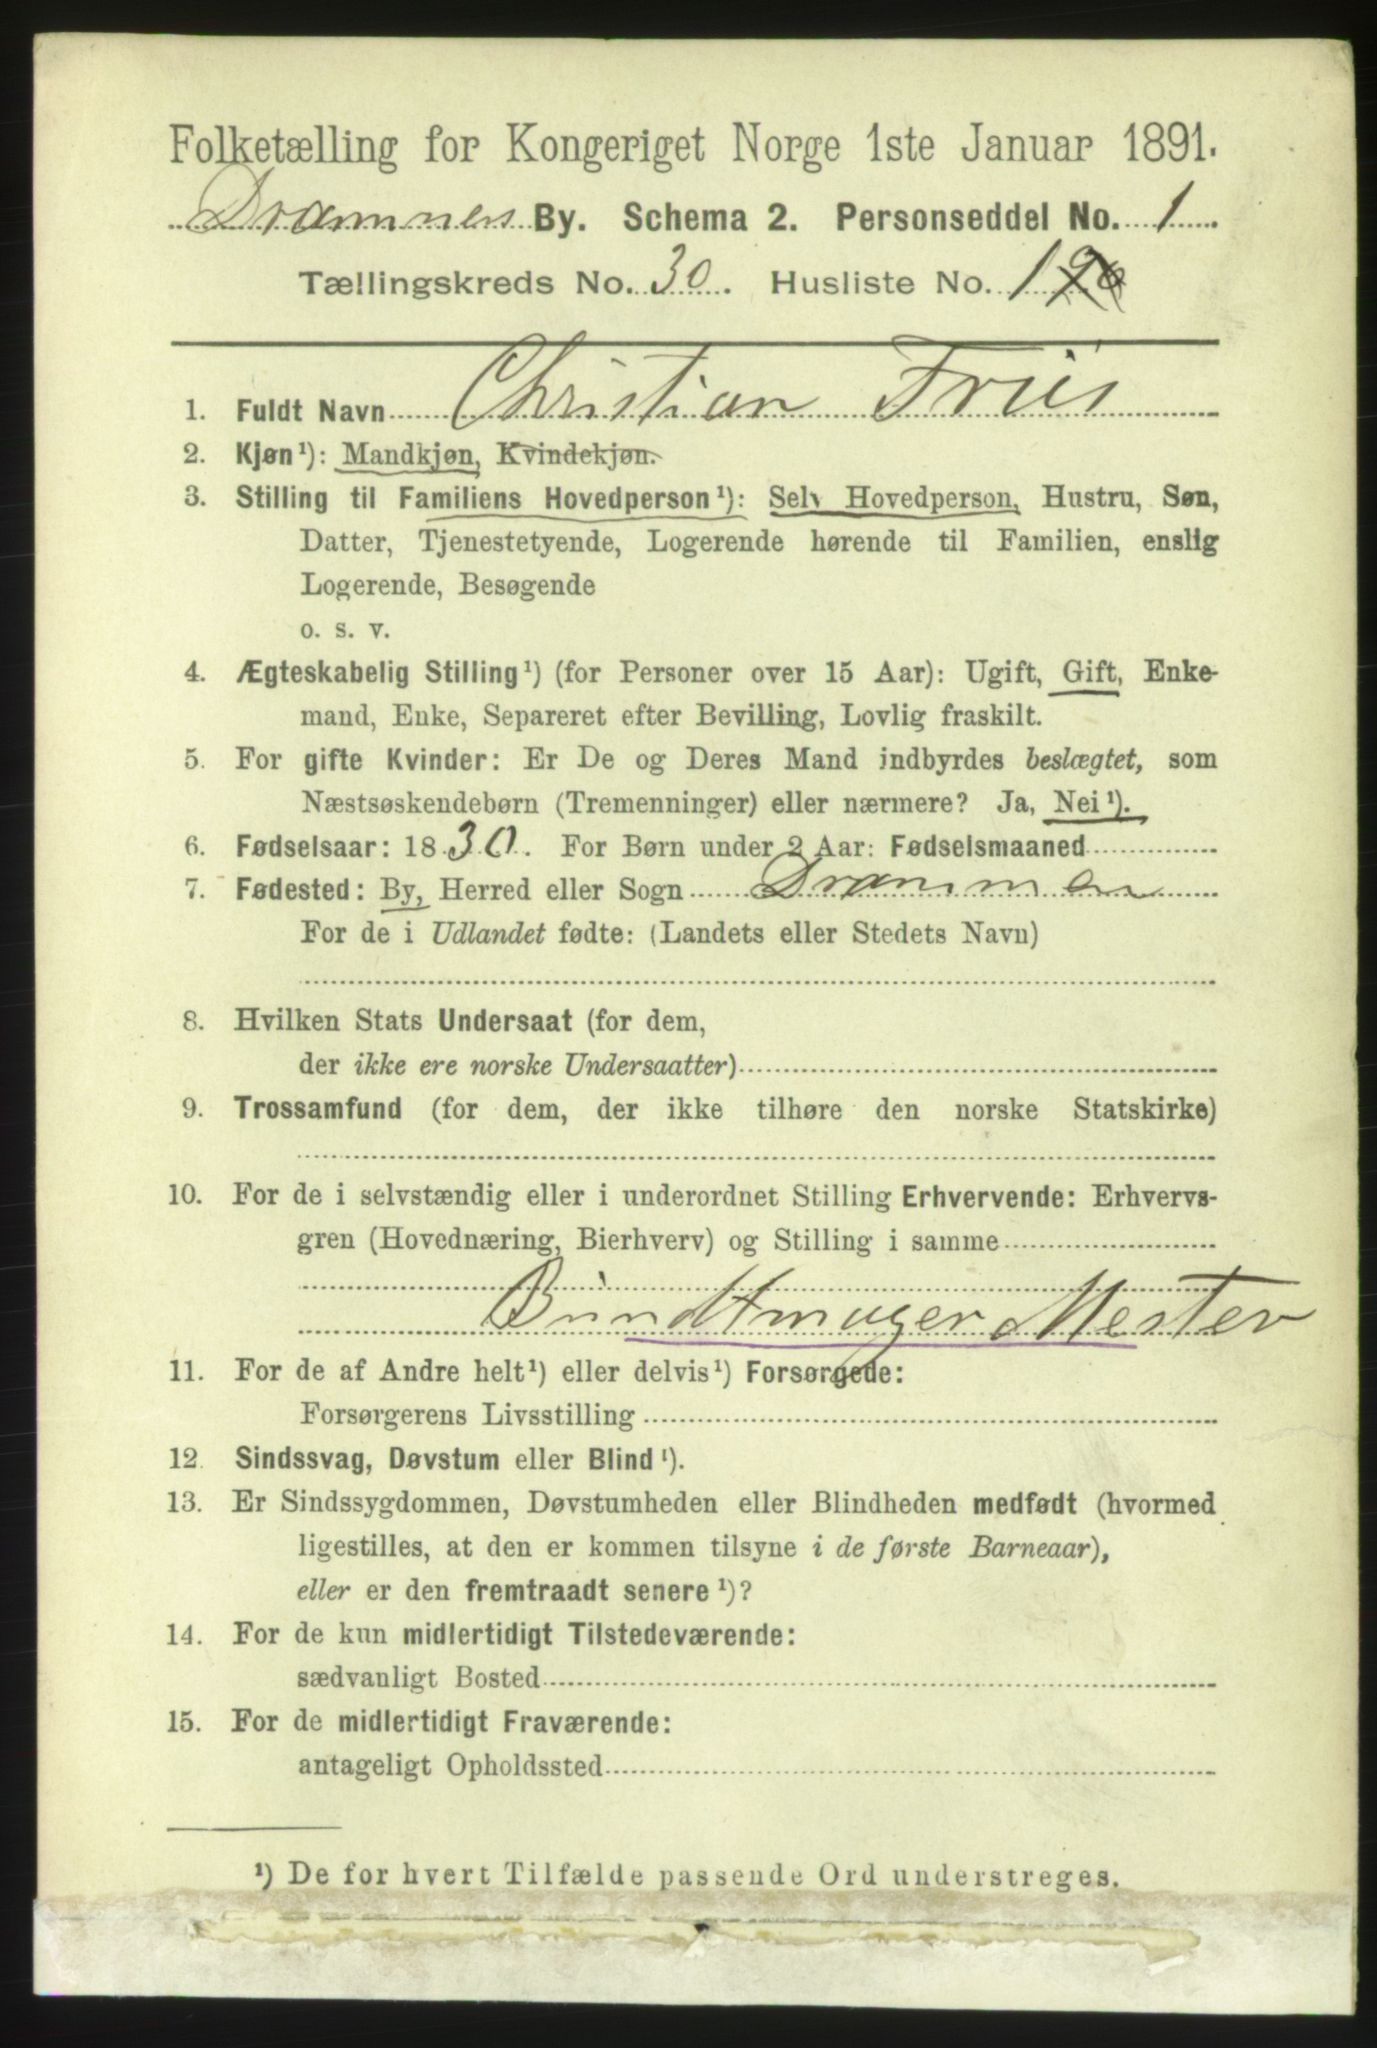 Folketælling for Kongeriget Norge 1ste Januar 1891.
Drammens By. Schema 2. Personseddel No. 1.
Tællingskreds No. 30. Husliste No. 1
1. Fuldt Navn Christian Friis
2. Kjøn¹): Mandkjøn, Kvindekjøn.
3. Stilling til Familiens Hovedperson¹): Selv Hovedperson, Hustru, Søn,
Datter, Tjenestetyende, Logerende hørende til Familien, enslig
Logerende, Besøgende
o. s. v.
4. Ægteskabelig Stilling¹) (for Personer over 15 Aar): Ugift, Gift, Enke-
mand, Enke, Separeret efter Bevilling, Lovlig fraskilt.
5. For gifte Kvinder: Er De og Deres Mand indbyrdes beslægtet, som
Næstsøskendebørn (Tremenninger) eller nærmere? Ja, Nei¹).
6. Fødselsaar: 1830. For Børn under 2 Aar: Fødselsmaaned
7. Fødested: By, Herred eller Sogn Drammen
For de i Udlandet fødte: (Landets eller Stedets Navn)
8. Hvilken Stats Undersaat (for dem,
der ikke ere norske Undersaatter)
9. Trossamfund (for dem, der ikke tilhøre den norske Statskirke)
10. For de i selvstændig eller i underordnet Stilling Erhvervende: Erhvervs-
gren (Hovednæring, Bierhverv) og Stilling i samme
Bundtmager Mester
11. For de af Andre helt¹) eller delvis¹) Forsørgede:
Forsørgerens Livsstilling
12. Sindssvag, Døvstum eller Blind¹).
13. Er Sindssygdommen, Døvstumheden eller Blindheden medfødt (hvormed
ligestilles, at den er kommen tilsyne i de første Barneaar),
eller er den fremtraadt senere¹)?
14. For de kun midlertidigt Tilstedeværende:
sædvanligt Bosted
15. For de midlertidigt Fraværende:
antageligt Opholdssted
¹) De for hvert Tilfælde passende Ord understreges.